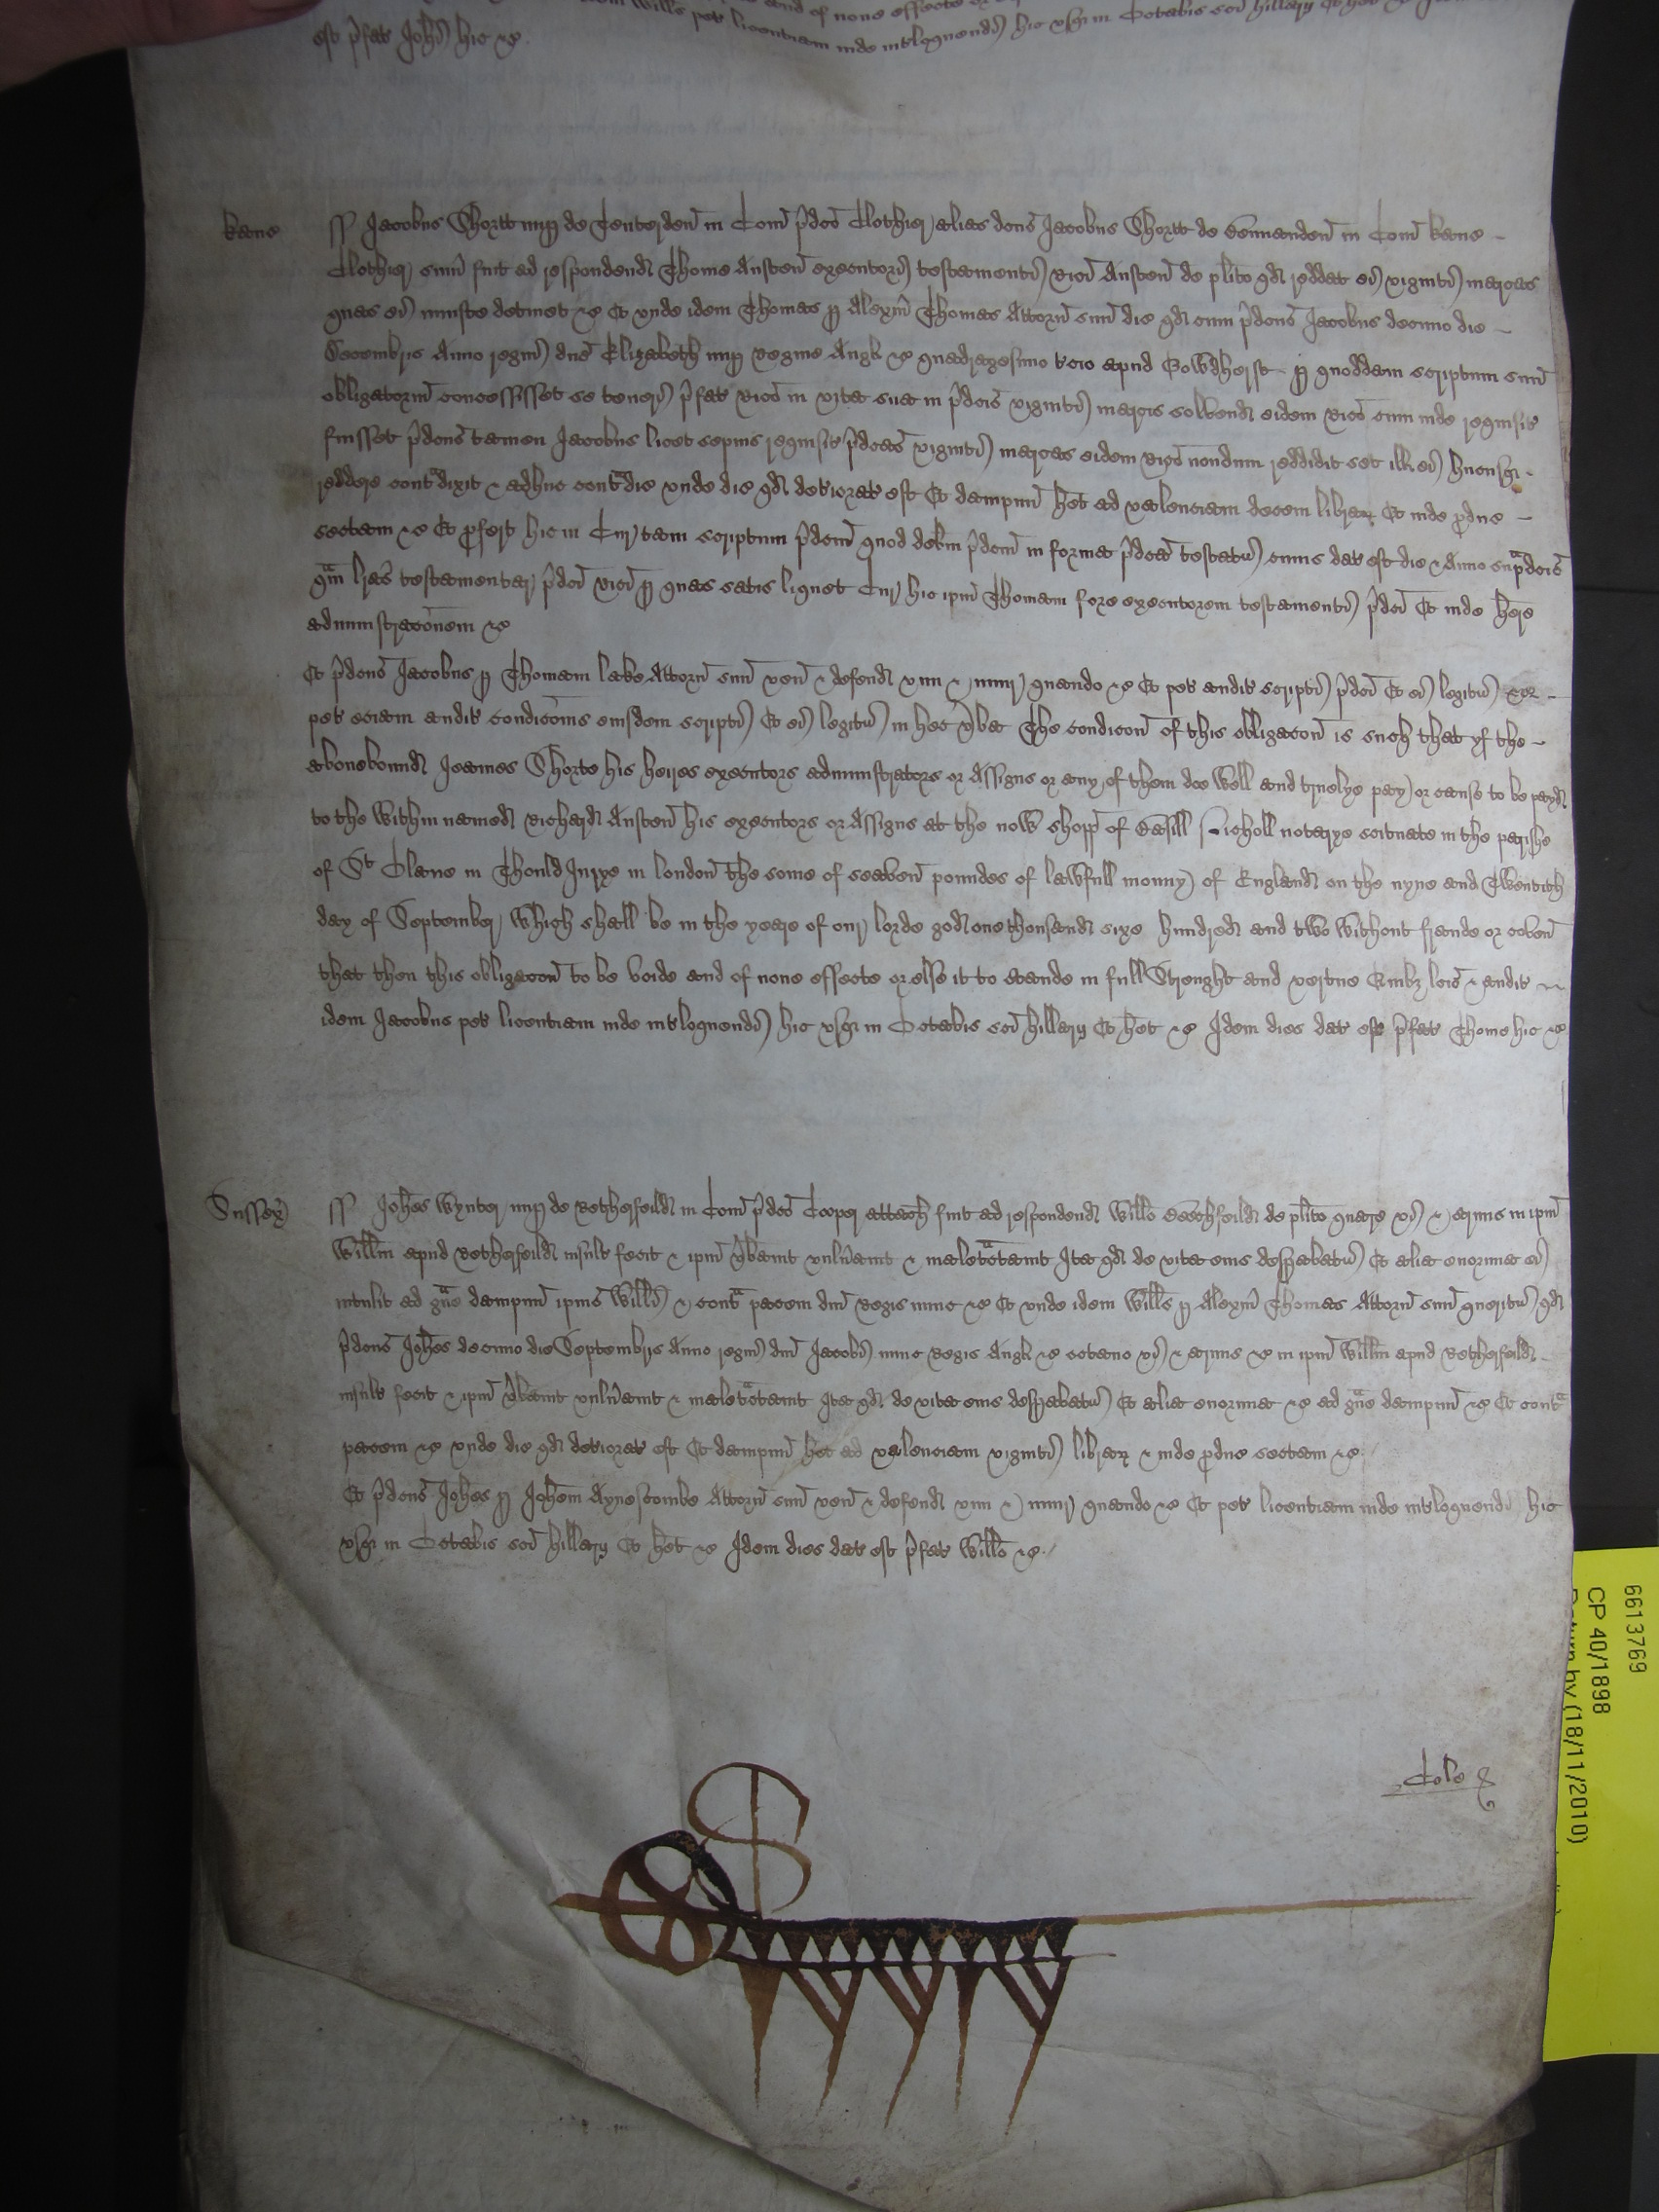 Wills pet licentiam inde intloquendi hic usqz in Octabis sci Hillary Et het
est p̱fat Johi hic &c
Kanc ss Jacobus Shortt nup de Tenterden in Com p̱dco Clothier alias dcus Jacobus Shortt de Bennenden in Com Kanc
Clothier sum fuit ad respondend Thome Austen executori testamenti Rici Austen de plito qd reddat ei viginti marcas
quas ei iniuste detinet &c Et unde idem Thomas p Alexm Thomas Attorn suu dic qd cum p̱dcus Jacobus decimo die
Decembris Anno regni dne Elizabeth nup Regine Angl &c quadragesimo tcio apud Gowdherst p quoddam scriptum suu
obligatoriu concessisset se teneri p̱fat Rico in vita sua in p̱dcis viginti marcis solvend eidem Rico cum inde requisit
fuisset p̱dcus tamen Jacobus licet sepius requisit p̱dcas viginti marcas eidem Rico nondum reddidit set ill ei hucusqz
reddere contradixit & adhuc contradic unde dic qd deteriorat est Et dampnu het ad valenciam decem librar Et inde produc
sectam &c Et profert hic in Cur tam scriptum p̱dcm quod debm p̱dcm in forma p̱dca testatur cuius dat est die & Anno sup̱adcis
qam lras testamentar p̱dci Rici p quas satis liquet Cur hic ipm Thomam fore executorem testamenti p̱dci Et inde here
administraconem &c
Et p̱dcus Jacobus p Thomam Lake Attorn suu ven & defend vim & iniur quando &c Et pet audit scripti p̱dci Et ei legitur &c
pet eciam audit condicois eiusdem scripti Et ei legitur in hec vba The condicon of this obligacon is such that yf the
abovebound Jeames Shorte his heires executors administrators or Assigns or any of them doe well and truelye pay or cause to be payd
to the within named Richard Austen his executors or Assigns at the now shopp of Basill Nicholl notarye scituate in the parishe
of St Olave in Thould Jurye in London the some of seaven poundes of lawfull monny of England on the nyne and Twentith
day of September which shall be in the yeare of our lorde god one thousand sixe hundred and two without fraude or coven
that then this obligacon to be voide and of none effecte or else it to stande in full Strenght and vertue Quibz lcis & audit
idem Jacobus pet licentiam inde intloquendi hic usqz in Octabis sci Hillary Et het &c Idem dies dat est p̱fat Thome hic &c
Sussex ss Johes Wynter nup de Retherfeild in Com p̱dco Cooper attach fuit ad respondend Willo Beachfeild de plito quare vi & armis in ipm
Willm apud Retherfeild insult fecit & ipm vbavit vulnavit & maletractavit Ita qd de vita eius despabatur Et alia enormia ei
intulit ad gave dampnu ipius Willi & contra pacem dni Regis nunc &c Et unde idem Wills p Alexm Thomas Attorn suu queritur qd
p̱dcus Johes decimo die Septembris Anno regni dni Jacobi nunc Regis Angl &c octavo vi & armis &c in ipm Willm apud Retherfeild
insult fecit & ipm vbavit vulnavit & maletractavit Ita qd de vita eius despabatur Et alia enormia &c ad gave dampnu &c Et contra
pacem &c unde dic qd deteriorat est Et dampnu het ad valenciam viginti librar & inde produc sectam &c
Et p̱dcus Johes p Johem Aynescombe Attorn suu ven & defend vim & iniur quando &c Et pet licentiam inde intloquendi hic
usqz in Octabis sci Hillary Et het &c Idem dies dat est p̱fat Willo &c
Cole
6613769
CP 40/1898
Return by (18/11/2010)